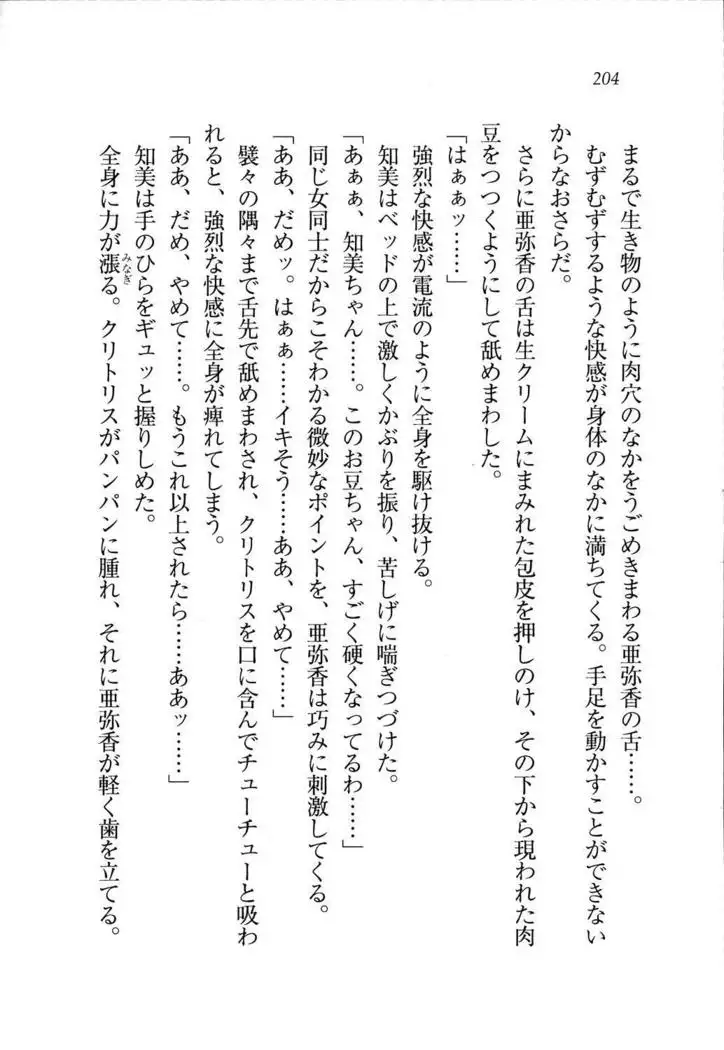 204
まるで生き物のように肉穴のなかをうごめきまわる亜弥香の舌……。
むずむずするような快感が身体のなかに満ちてくる。手足を動かすことができない
からなおさらだ。
さらに亜弥香の舌は生クリームにまみれた包皮を押しのけ、その下から現われた肉
豆をつつくようにして舐めまわした。
「はぁぁッ……」
強烈な快感が電流のように全身を駆け抜ける。
知美はベッドの上で激しくかぶりを振り、苦しげに喘ぎつづけた。
「あぁぁ、知美ちゃん……。このお豆ちゃん、すごく硬くなってるわ……」
同じ女同士だからこそわかる微妙なポイントを、亜弥香は巧みに刺激してくる。
「ああ、だめッ。はぁぁ……イキそう……ああ、やめて……」
襞々の隅々まで舌先で舐めまわされ、クリトリスを口に含んでチューチューと吸わ
れると、強烈な快感に全身が痺れてしまう。
「ああ、だめ、やめて……。もうこれ以上されたら……ああッ……」
知美は手のひらをギュッと握りしめた。
全身に力が漲みなぎる。クリトリスがパンパンに腫れ、それに亜弥香が軽く歯を立てる。